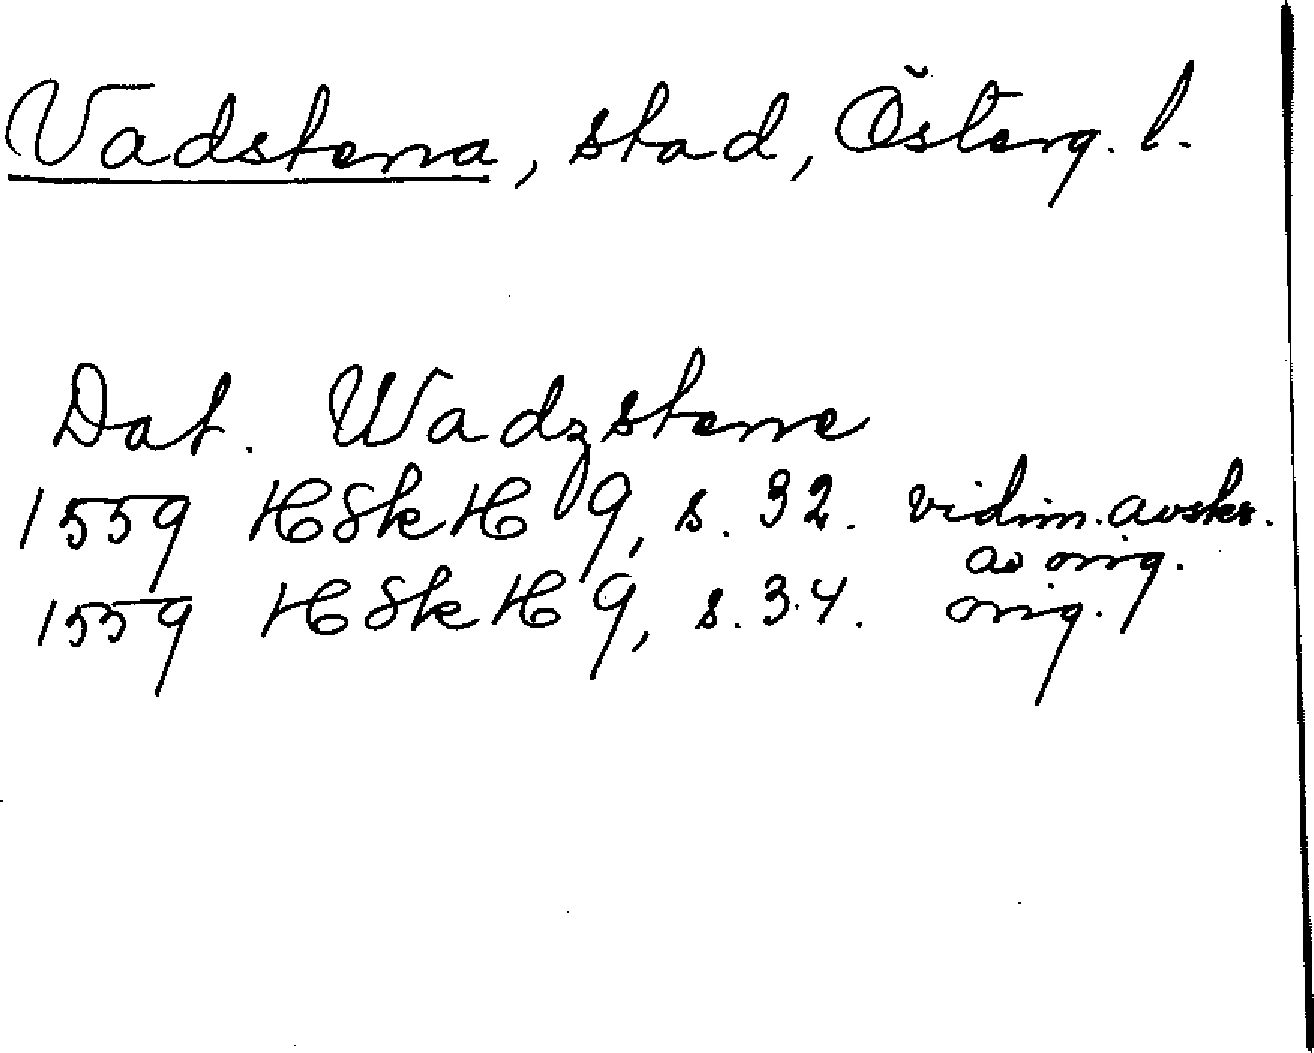 Vadstena, stad, Österg. l.
Dat. Wadzstene
1559 HSkH 9, s. 32. vidim. avskr.
av orig.
1559 HSkH 9, s. 34. orig.